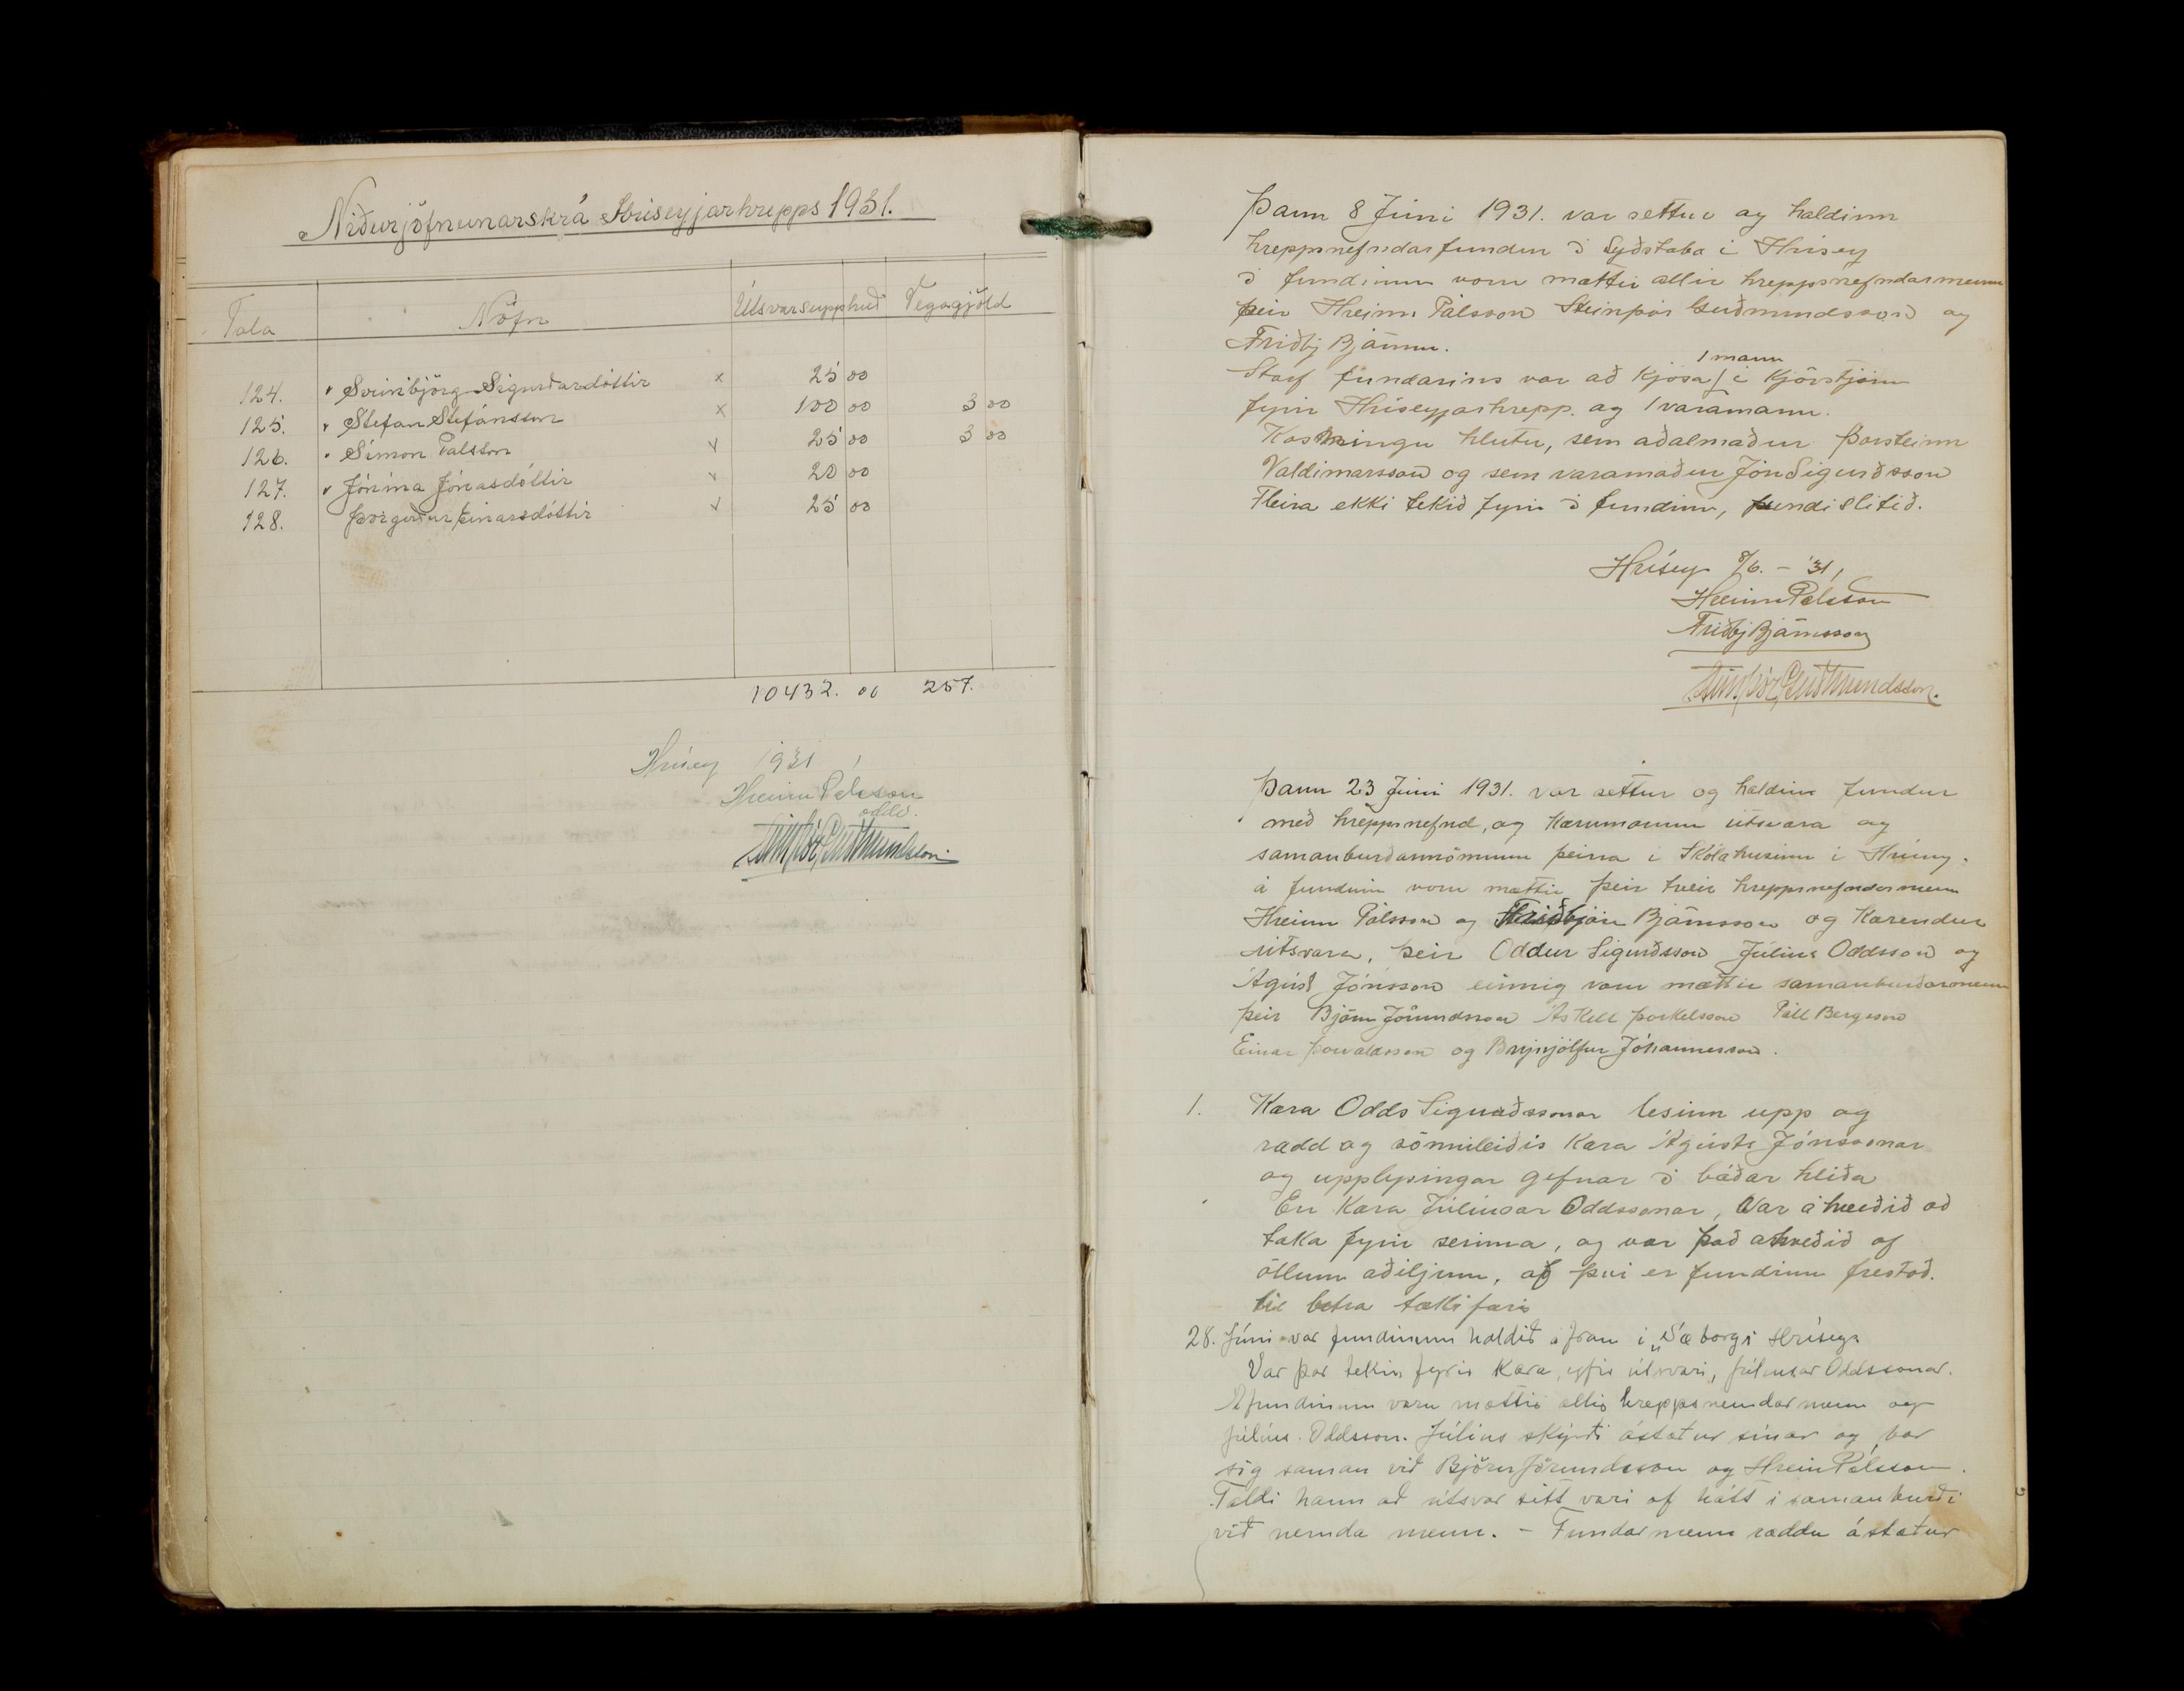 Niðurjöfnunarskrá Hríseyjarhrepps 1931.
Tala Nöfn Útsvarsupphæð Vegagjöld
124. Sveinbjörg Sigurðardóttir x 25 00
125. Stefan Stefánsson x 100 00 3 00
126. Símon Palsson v 25 00 3 00
127. Jónína Jónasdóttir v 20 00
128. Þorgerður Einarsdóttir v 25 00
10432. 00 257.
Hrísey 1931,
Hreinn Pálsson
oddv.
Steinþór Guðmundsson
Þann 8 Júni 1931. var settur og haldinn
hreppsnefndarfundur á Syðstabæ i Hrisey
á fundinum voru mættir allir hreppsnefndarmenn
þeir Hreinn Pálsson Steinþór Guðmundsson og
Friðbj Björnss.
Starf fundarins var að Kjósa 1 mann i Kjörstjórn
fyrir Hríseyjarhrepp. og 1 varamann.
Kosningu hlutu, sem aðalmaður Þorsteinn
Valdimarsson og sem varamaður Jón Sigurðsson
Fleira ekki tekið fyrir á fundinn, fundi slitið.
Hrísey 8/6. - '31,
Hreinn Pálsson
Friðbj Björnsson
Steinþór Guðmundsson.
Þann 23 Júni 1931. var settur og haldinn fundur
með hreppsnefnd, og Kærumönnum útsvara og
samanburðarmönnum þeirra i Skólahúsinu i Hrísey.
á fundinn voru mættir þeir tveir hreppsnefndarmenn
Hreinn Pálsson og Friðbjörn Björnsson og Kærendur
útsvara, þeir Oddur Sigurðsson Júlíus Oddsson og
Ágúst Jónsson einnig voru mættir samanburðarmenn
þeir Björn Jörundsson Áskell Þorkelsson Páll Bergsson
Einar Þorvaldsson og Brynjólfur Jóhannesson.
1. Kæra Odds Sigurðssonar lesinn upp og
rædd og sömuleiðis Kæra Ágústs Jónssonar
og upplýsingar gefnar á báðar hliða
En Kæra Júlíusar Oddssonar, Var ákveðið að
taka fyrir seinna, og var það ákveðið af
öllum aðiljum, af því er fundinn frestað.
til betra tækifæris
28. Júni var fundinum haldið áfram í "Sæborg í Hrísey.
Var þar tekin fyrir kæra, yfir útsvari, Júlíusar Oddssonar.
Á fundinum voru mættir allir hreppsnemdarmenn og
Júlíus Oddsson. Júlíus skýrði ástæður sínar og bar
sig saman við Björn Jörundsson og Hrein Pálsson.
Taldi hann að útsvar sitt væri of hátt í samanburði
við nemda menn. - Fundarmenn ræddu ástæður